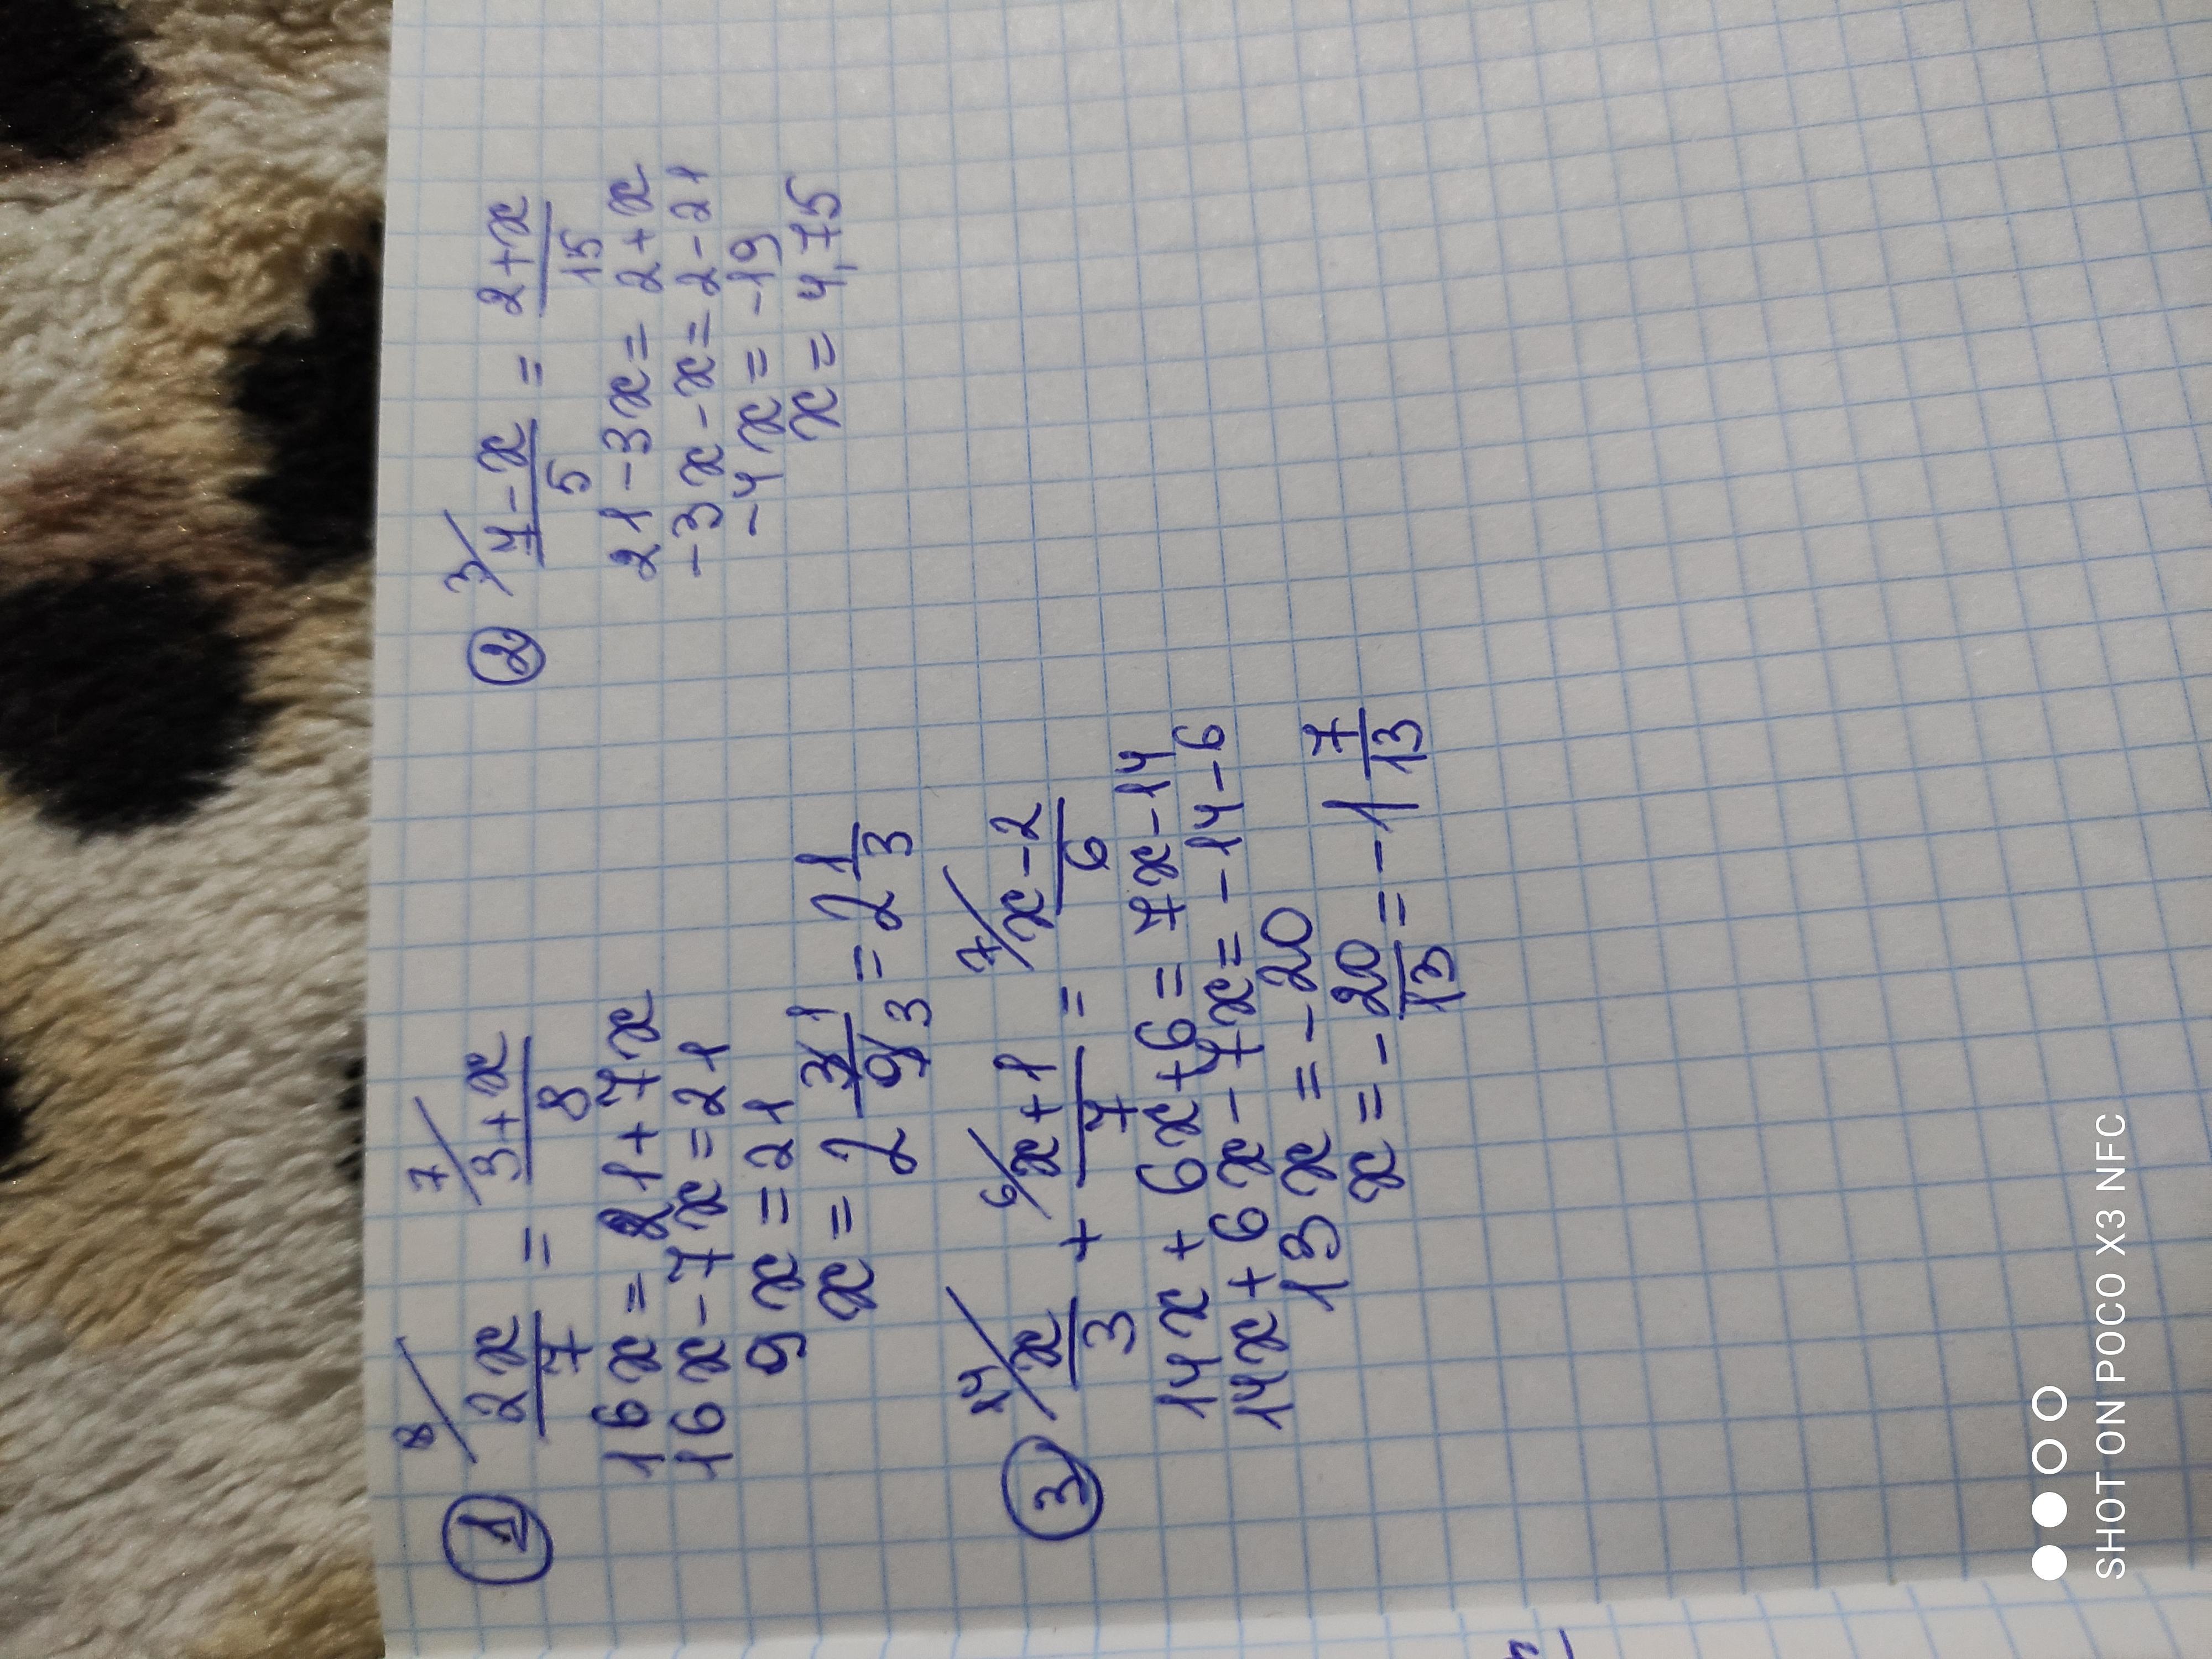 ① 8/ 2x/7 = 7/ 3+x/8
16x = 21+7x
16x-7x=21
9x=21
x=2 3/9 1/3 = 2 1/3
② 3/ 7-x/5 = 2+x/15
21-3x=2+x
-3x-x=2-21
-4x=-19
x=4,75
③ 14/ x/3 + 6/ x+1/7 = 7/ x-2/6
14x+6x+6=7x-14
14x+6x-7x=-14-6
13x=-20
x=-20/13=-1 7/13
SHOT ON POCO X3 NFC